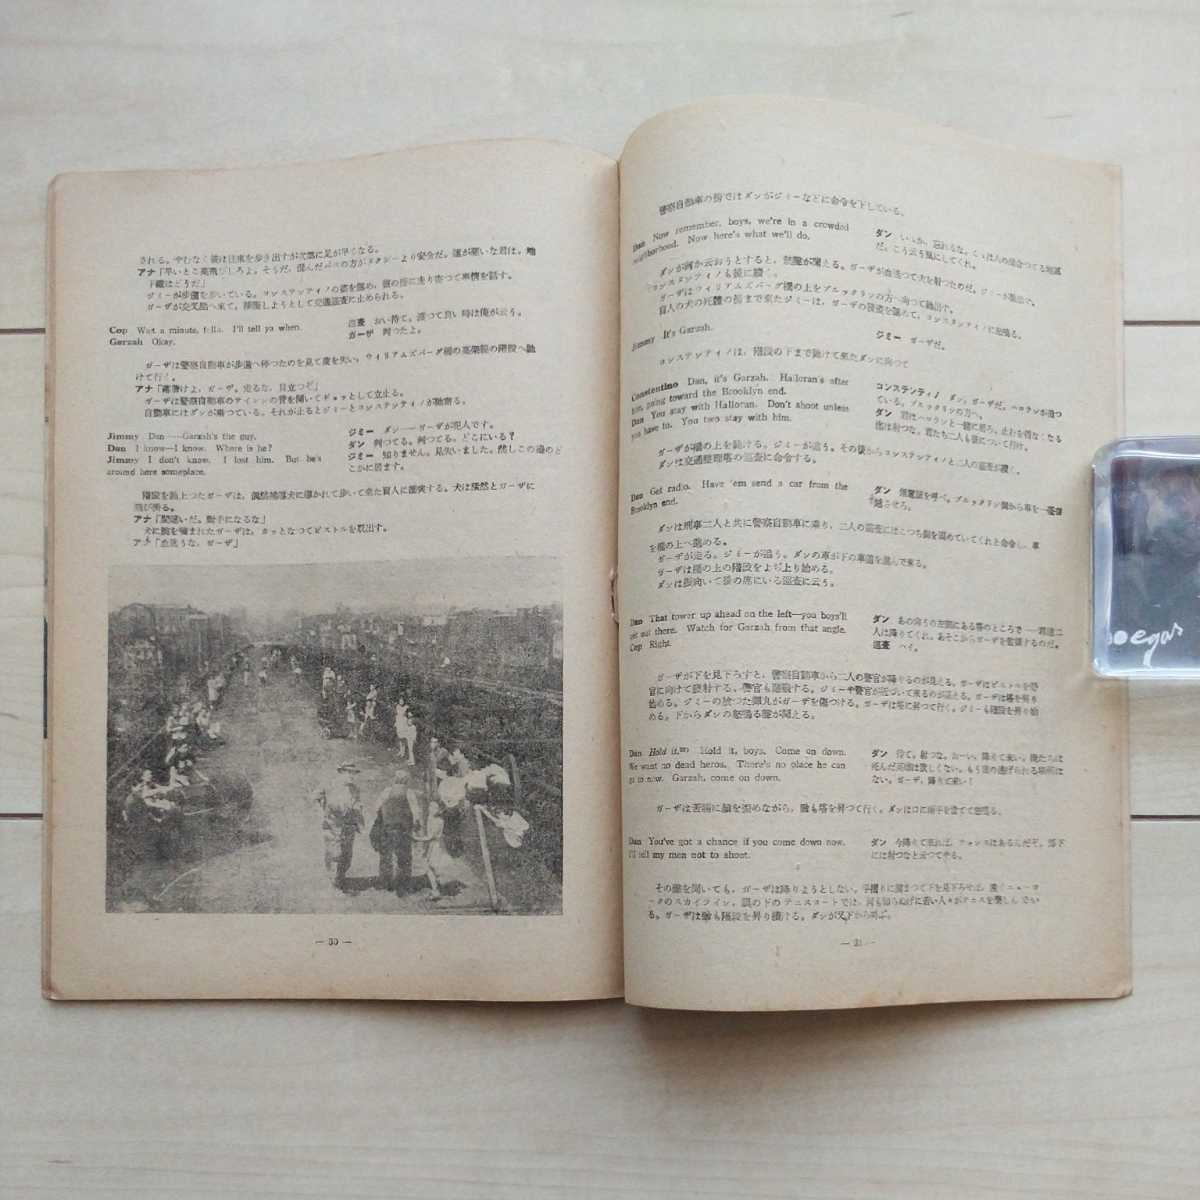 される。やむなく彼は往来を歩き出すが次第に足が早くなる。
アナ「早いとこ高飛びしろよ。そうだ、混んだバスの方がタクシーより安全だ。運が悪いな君は。地
下鐵はどうだ」
ジミーが歩道を歩いている。コンスタンティノの姿を認め、彼の傍に走り寄つて事情を話す。
ガーザが交叉点へ来て、横断しようとして交通巡査に止められる。
Cop Wait a minute, fella. I'll tell ya when.
Garzah Okay.
巡査 おい待て。渡つて良い時は俺が云う。
ガーザ 判つたよ。
ガーザは警察自動車が歩道へ停つたのを見て度を失い、ウイリアムズバーグ橋の高架線の階段へ馳
けて行く。
アナ「落着けよ、ガーザ。走るな、目立つぞ」
ガーザは警察自動車のサイレンの音を聞いてギョッとして立止る。
自動車にはダンが乗つている。それが止るとジミーとコンスタンティノが馳寄る。
Jimmy Dan—Garzah's the guy.
Dan I know—I know. Where is he?
Jimmy I don't know. I lost him. But he's
around here someplace.
ジミー ダン——ガーザが犯人です。
ダン 判つてる。判つてる。どこにいる?
ジミー 知りません。見失いました。然しこの邊のど
こかに居ます。
階段を馳上つたガーザは、偶然補導犬に導かれて歩いて来た盲人に衝突する。犬は猛然とガーザに
飛び掛る。
アナ「間違いだ。相手になるな」
犬に腕を噛まれたガーザは、カッとなつてピストルを取出す。
アナ「血迷うな、ガーザ」
— 30 —
警察自動車の傍ではダンがジミーなどに命令を下している。
Dan Now remember, boys, we're in a crowded
neighborhood. Now here's what we'll do.
ダン いゝか、忘れるな。こゝは人の混合つてる地區
だ。こう云う風にしてくれ。
ダンが何か云おうとすると、銃聲が聞える。ガーザが血迷つて犬を射つたのだ。ジミーが駆出す。
コンスタンティノも後に續く。
ガーザはウイリアムズバーグ橋の上をブルックリンの方へ向つて馳出す。
盲人の犬の死體の傍まで来たジミーは、ガーザの後姿を認めて、コンスタンティノに怒鳴る。
Jimmy It's Garzah.
ジミー ガーザだ。
コンスタンティノは、階段の下まで馳けて来たダンに向つて
Constentino Dan, it's Garzah. Halloran's after
him, going toward the Brooklyn end.
Dan You stay with Halloran. Don't shoot unless
you have to. You two stay with him.
コンステンティノ ダン、ガーザだ。ハロランが追つ
ている。ブルックリンの方へ。
ダン 君はハロランと一緒に居ろ。止むを得なくなる
迄は射つな。君たち二人も彼について行け。
ガーザが橋の上を馳ける。ジミーが追う。その後からコンステンティノと二人の巡査が續く。
ダンは交通整理塔の巡査に命令する。
Dan Get radio. Have 'em send a car from the
Brooklyn end.
ダン 無電話を呼べ。ブルックリン側から車を一臺寄
越させろ。
ダンは刑事二人と共に警察自動車に乗り、二人の巡査にはこつち側を固めていてくれと命令し、車
を橋の上へ進める。
ガーザが走る。ジミーが追う。ダンの車が下の車道を進んで来る。
ガーザは橋の上の階段をよぢ上り始める。
ダンは振向いて後の席にいる巡査に云う。
Dan That tower up ahead on the left—you boys'll
get out there. Watch for Garzah from that angle.
Cop Right.
ダン あの向うの左側にある塔のところで——君達二
人は降りてくれ。あそこからガーザを監視するのだ。
巡査 ハイ。
ガーザが下を見下ろすと、警察自動車から二人の警官が降りるのが見える。ガーザはピストルを警
官に向けて發射する。警官も應戦する。ジミーや警官が近づいて来るのが見える。ガーザは塔を昇り
始める。ジミーの放つた彈丸がガーザを傷つける。ガーザは塔に昇つて行く。ジミーも階段を昇り始
める。下からダンの怒鳴る聲が聞える。
Dan Hold it. Hold it, boys. Come on down.
We want no dead heros. There's no place he can
go to now. Garzah, come on down.
ダン 待て。射つな。おーい、降りて来い。俺たちは
死んだ英雄は欲しくない。もう彼の逃げられる場所は
ない。ガーザ、降りて来い!
ガーザは苦痛に顔を歪めながら、尚も塔を昇つて行く。ダンは口に兩手を當てて怒鳴る。
Dan You've got a chance if you come down now.
I'll tell my men not to shoot.
ダン 今降りて来れば、チャンスはあるんだぞ。部下
には射つなと云つてやる。
その聲を聞いても、ガーザは降りようとしない。手摺りに掴まつて下を見下ろせば、遠くニューヨ
ークのスカイライン、眼の下のテニスコートでは、何も知らぬげに若い人々がテニスを樂しんでい
る。ガーザは尚も階段を昇り續ける。ダンが又下から叫ぶ。
— 31 —
egas